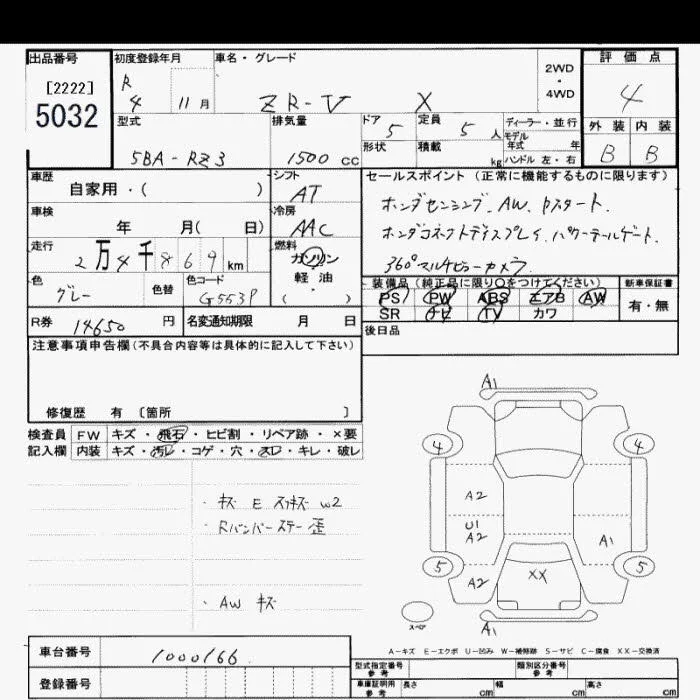 出品番号 初度登録年月 車名・グレード 評価点
[2222] R 2WD・4WD
5032 4 11月 ZR-V X 4
型式 排気量 ドア 5 定員 5人 ディーラー・並行 外装 内装
モデル年式 年
5BA-RZ3 1500cc 形状 積載 kg ハンドル 左・右 B B
車歴 シフト セールスポイント (正常に機能するものに限ります)
自家用・( ) AT ホンダセンシング. AW. Pスタート.
車検 冷房
年 月( 日) AAC ホンダコネクトディスプレイ. パワーテールゲート.
走行 燃料
2万4千869km ガソリン 360°マルチビューカメラ
色 色替 色コード 軽油 装備品 (純正品に限り○をつけてください) 新車保証書
グレー G553P ( ) PS PW ABS エアB AW 有・無
SR ナビ TV カワ
R券 14650円 名変通知期限 月 日 後日品
注意事項申告欄(不具合内容等は具体的に記入して下さい)
修復歴 有 〔箇所 〕
検査員 FW キズ・飛石・ヒビ割・リペア跡・×要
記入欄 内装 キズ・汚レ・コゲ・穴・スレ・キレ・破レ
・キズ E スリキズ W2
・Rバンパーステー歪
・AW キズ
A1
4 4
A2
U1
A2 A1
5 5
A2 XX
スペア A1
A-キズ E-エクボ U-凹み W-補修跡 S-サビ C-腐食 XX-交換済
車台番号 1000166
登録番号
型式指定番号 参考 類別区分番号 参考
車庫証明用 参考 長さ cm 幅 cm 高さ cm